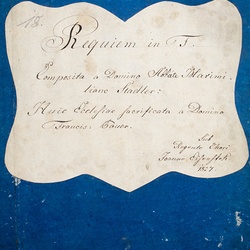 18.
Requiem in F.
Composita a Domino Abbate Maximi-
liano Stadler:
Huic Ecclesiae sacrificata a Domino
Francis. Bauer.
Sub
Regente Chori
Joanne
1827.